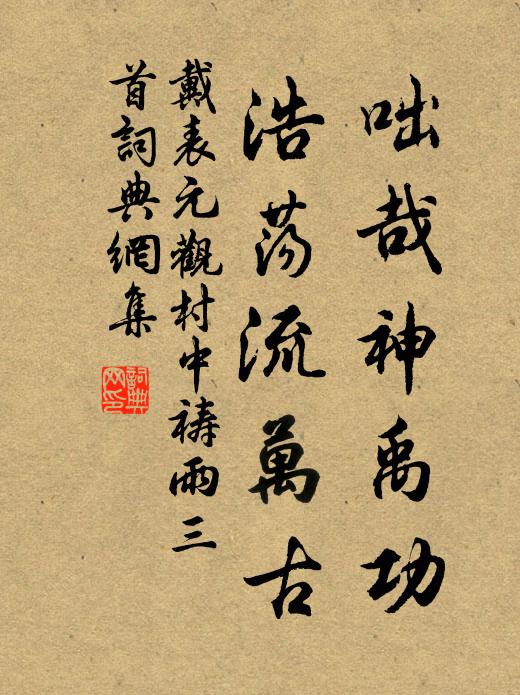 咄哉神禹功
浩蕩流萬古
戴表元觀村中禱雨三
首詞典網集
詞典
网印